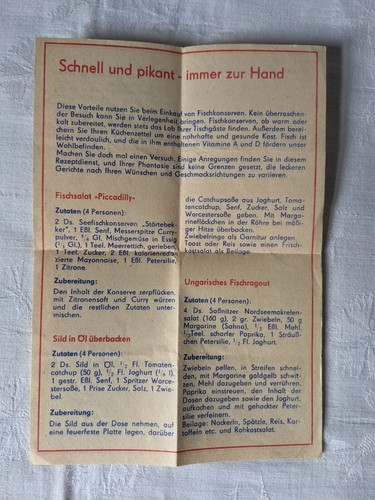 Schnell und pikant – immer zur Hand
Diese Vorteile nutzen Sie beim Einkauf von Fischkonserven. Kein überraschen-
der Besuch kann Sie in Verlegenheit bringen. Fischkonserven, ob warm oder
kalt zubereitet, werden stets das Lob Ihrer Tischgäste finden. Außerdem berei-
chern Sie Ihren Küchenzettel um eine nahrhafte und gesunde Kost. Fisch ist
leicht verdaulich, und die in ihm enthaltenen Vitamine A und D fördern unser
Wohlbefinden.
Machen Sie doch mal einen Versuch. Einige Anregungen finden Sie in diesem
Rezeptdienst, und Ihrer Phantasie sind keine Grenzen gesetzt, die leckeren
Gerichte nach Ihren Wünschen und Geschmacksrichtungen zu variieren.
Fischsalat »Piccadilly«
Zutaten (4 Personen):
2 Ds. Seefischkonserven „Störtebe-
ker“, 1 EBl. Senf, Messerspitze Curry-
pulver, ¼ Gl. Mischgemüse in Essig
(¹/₁ Gl.), 1 Teel. Meerrettich, gerieben,
1 Teel. Zucker, 2 EBl. kalorienredu-
zierte Mayonnaise, 1 EBl. Petersilie,
1 Zitrone.
Zubereitung:
Den Inhalt der Konserve zerpflücken,
mit Zitronensaft und Curry würzen
und die restlichen Zutaten unter-
mischen.
Sild in Öl überbacken
Zutaten (4 Personen):
2 Ds. Sild in Öl, ½ Fl. Tomaten-
catchup (50 g), ½ Fl. Joghurt (¼ l),
1 gestr. EBl. Senf, 1 Spritzer Worce-
stersoße, 1 Prise Zucker, Salz, 1 Zwie-
bel.
Zubereitung:
Die Sild aus der Dose nehmen, auf
eine feuerfeste Platte legen, darüber
die Catchupsoße aus Joghurt, Toma-
tencatchup, Senf, Zucker, Salz und
Worcestersoße geben. Mit Marga-
rineflöckchen in der Röhre bei mäßi-
ger Hitze überbacken.
Zwiebelringe als Garnitur anlegen.
Toast oder Reis sowie einen Frisch-
kostsalat als Beilage.
Ungarisches Fischragout
Zutaten (4 Personen):
4 Ds. Saßnitzer Nordseemakrelen-
salat (160 g), 2 gr. Zwiebeln, 50 g
Margarine (Sahna), ½ EBl. Mehl,
½ Teel. scharfer Paprika, 1 Sträuß-
chen Petersilie, ½ Fl. Joghurt.
Zubereitung:
Zwiebeln pellen, in Streifen schnei-
den, mit Margarine goldgelb schwit-
zen, Mehl dazugeben und verrühren,
Paprika einstreuen, den Inhalt der
Dosen dazugeben sowie den Joghurt,
aufkochen und mit gehackter Peter-
silie verfeinern.
Beilage: Nockerln, Spätzle, Reis, Kar-
toffeln etc. und Rohkostsalat.